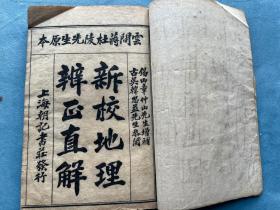 雲間蔣杜陵先生原本
錫山章仲山先生增補
古吳韓先生參閱
新校地理
辨正直解
上海朝記書莊發行